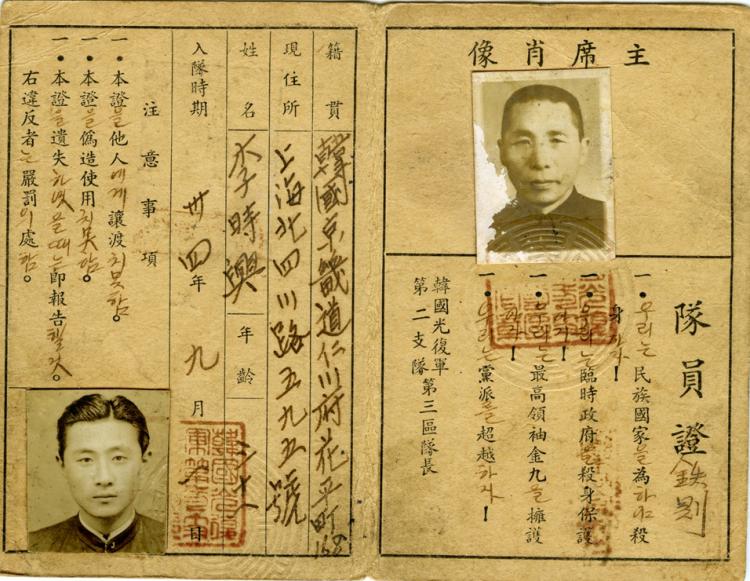 主席肖像
隊員證 鉄則
一•우리는民族國家을為하야殺
身하자!
一•우리는臨時政府를殺身保護
하자!
一•우리는最高領袖金九을擁護
하자!
一•우리는黨派을超越하자!
韓國光復軍
第二支隊第三區隊長
籍貫 韓國京畿道仁川府花平町168
現住所 上海北四川路五九五號
姓名 李時興 年齡
入隊時期 卅四年九月 日
注意事項
一•本證을他人에게讓渡치못함。
一•本證을偽造使用치못함。
一•本證을遺失하엿을때는即報告할것。
右違反者는嚴罰의處함。